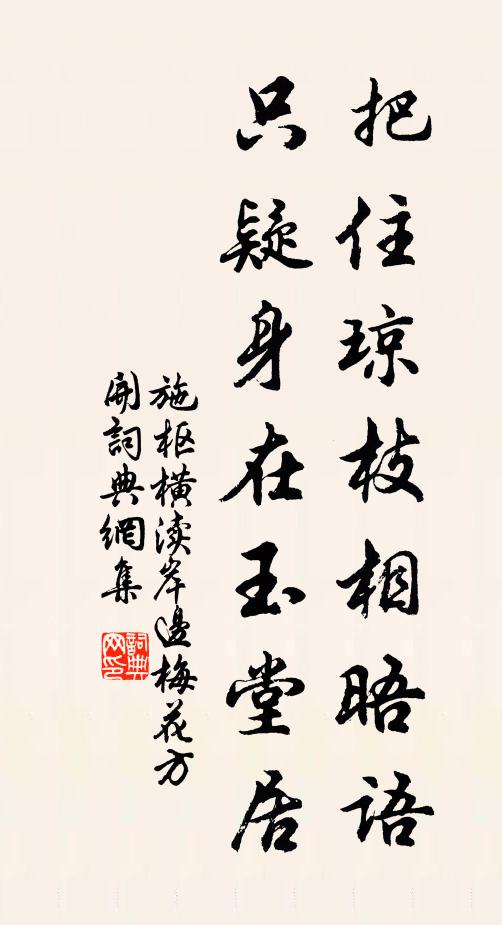 把住琼枝相晤语
只疑身在玉堂居
施枢横渎岸邊梅花方
開詞典網集